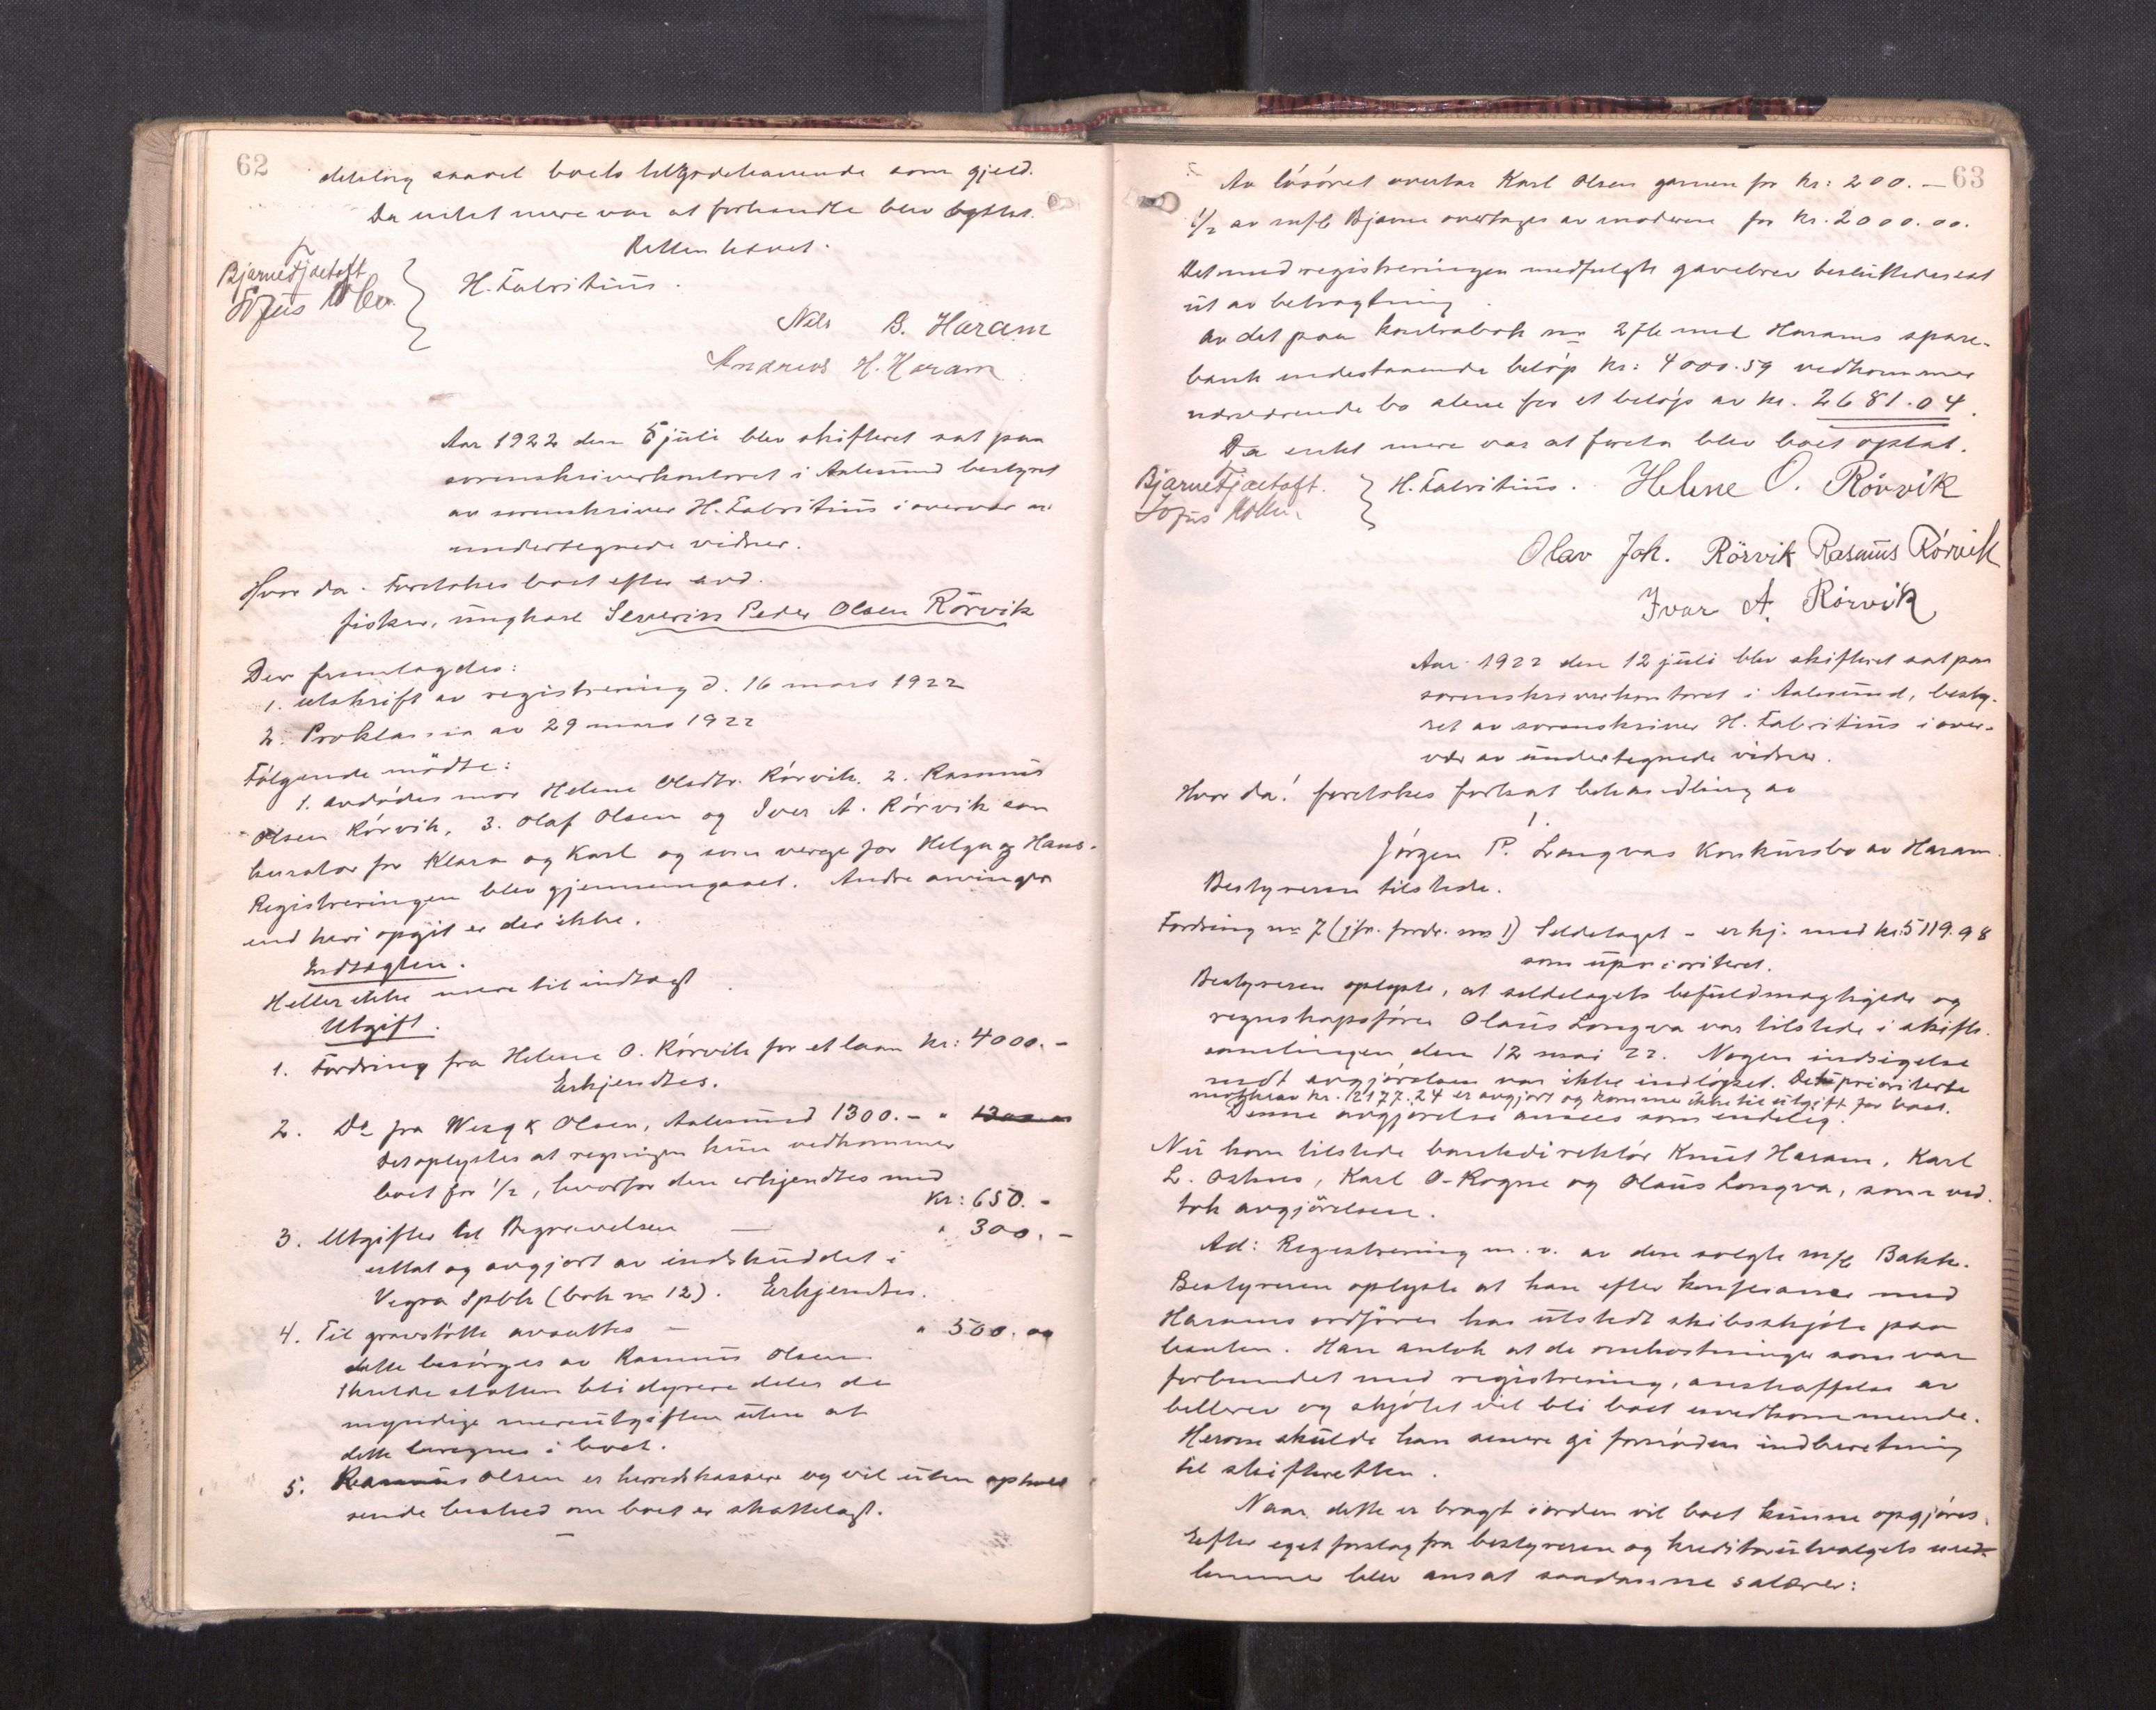 62
deling saavel boets tilgodehavende som gjeld.
Da intet mere var at forhandle blev sluttet.
Retten hævet.
Bjarne Fjætoft
H. Fabritius.
Nils B. Haram
Andreas H. Haram
Aar 1922 den 5 juli blev skifteret sat paa
sorenskriverkontoret i Aalesund bestyret
av sorenskriver H. Fabritius i overvær av
undertegnede vidner.
Hvor da. Foretokes boet efter avd.
fisker, ungkarl Severin Peder Olsen Rörvik
Der fremlagdes:
1. utskrift av registrering d. 16 mars 1922
2. Proklama av 29 mars 1922
Følgende mödte:
1. avdødes mor Helene Olsdtr. Rórvik. 2. Rasmus
Olsen Rórvik, 3. Olaf Olsen og Iver A. Rórvik som
kurator for Klara og Karl og som verge for Helga og Hans.
Registreringen blev gjennemgaaet. Andre arvinger
end heri opgit er der ikke.
Indtægten.
Heller ikke mere til indtægt.
Utgift.
1. Fordring fra Helene O. Rórvik for et laan kr: 4000.-
Erkjendtes.
2. Do fra Olsen, Aalesund 1300.- " 1300.00
Det oplystes at regningen kun vedkommer
boet for 1/2, hvorfor den erkjendtes med
Kr: 650.-
3. Utgifter til Begravelsen — " 300.-
uttat og avgjort av indskuddet i
Vigra Spbk (bok no 12). Erkjendtes.
4. Til gravstötte avsattes — " 500.00
dette besörges av Rasmus Olsen.
Skulde stötten bli dyrere deles de
myndige merutgiften uten at
dette beregnes i boet.
5. Rasmus Olsen er herredskasserer og vil uten ophold
sende besked om boet er skattelagt.
63
Av lósóret overtar Karl Olsen garnene for kr: 200.-
1/2 av m/b Bjarne overtages av moderen for kr. 2000.00.
Det med registreringen medfulgte gavebrev besluttedes sat
ut av betragtning.
Av det paa kontrabok no 276 med Harams spare-
bank indestaaende beløp kr: 4000.59 vedkommer
nærværende bo alene for et beløp av kr. 2681.04.
Da intet mere var at foreta blev boet optat.
Bjarne Fjætoft.
H. Fabritius. Helene O. Rövvik
Olav Joh. Rörvik Rasmus Rórvik
Ivar A. Rórvik
Aar 1922 den 12 juli blev skifteret sat paa
sorenskriverkontoret i Aalesund, besty-
ret av sorenskriver H. Fabritius i over-
vær av undertegnede vidner.
Hvor da! foretokes fortsat behandling av
1.
Jörgen P. Longvas Konkursbo av Haram.
Bestyreren tilstede.
Fordring no 7 (jfr. fordr. no 1) Sildelaget - erkj. med kr: 5119.98
som uprioritert.
Bestyreren oplyste, at sildelagets befuldmægtigede og
regnskapsfører Olaus Longva var tilstede i skifte-
samlingen den 12 mai 22. Nogen indsigelse
mot avgjörelsen var ikke indløpet. Det prioriterte
motkrav kr. 12177.24 er avgjort og kommer ikke til utgift for boet.
Denne avgjørelse ansees som endelig.
Nu kom tilstede bankdirektör Knut Haram, Karl
L. Oshus, Karl O. Rogne og Olaus Longva, som ved-
tok avgjörelsen.
Ad: Registrering m. v. av den solgte m/b Bakk.
Bestyreren oplyste at han efter konferanse med
Harams ordförer har utstedt skibsskjóte paa
baaten. Han antok at de omkostninger som var
forbundet med registrering, anskaffelse av
bilbrev og skjótet vil bli boet uvedkommende.
Herom skulde han senere gi fornóden indberetning
til skifteretten.
Naar dette er bragt iorden vil boet kunne opgjöres.
Efter eget forslag fra bestyreren og kreditorutvalgets med-
lemmer blev ansat saadanne salærer: